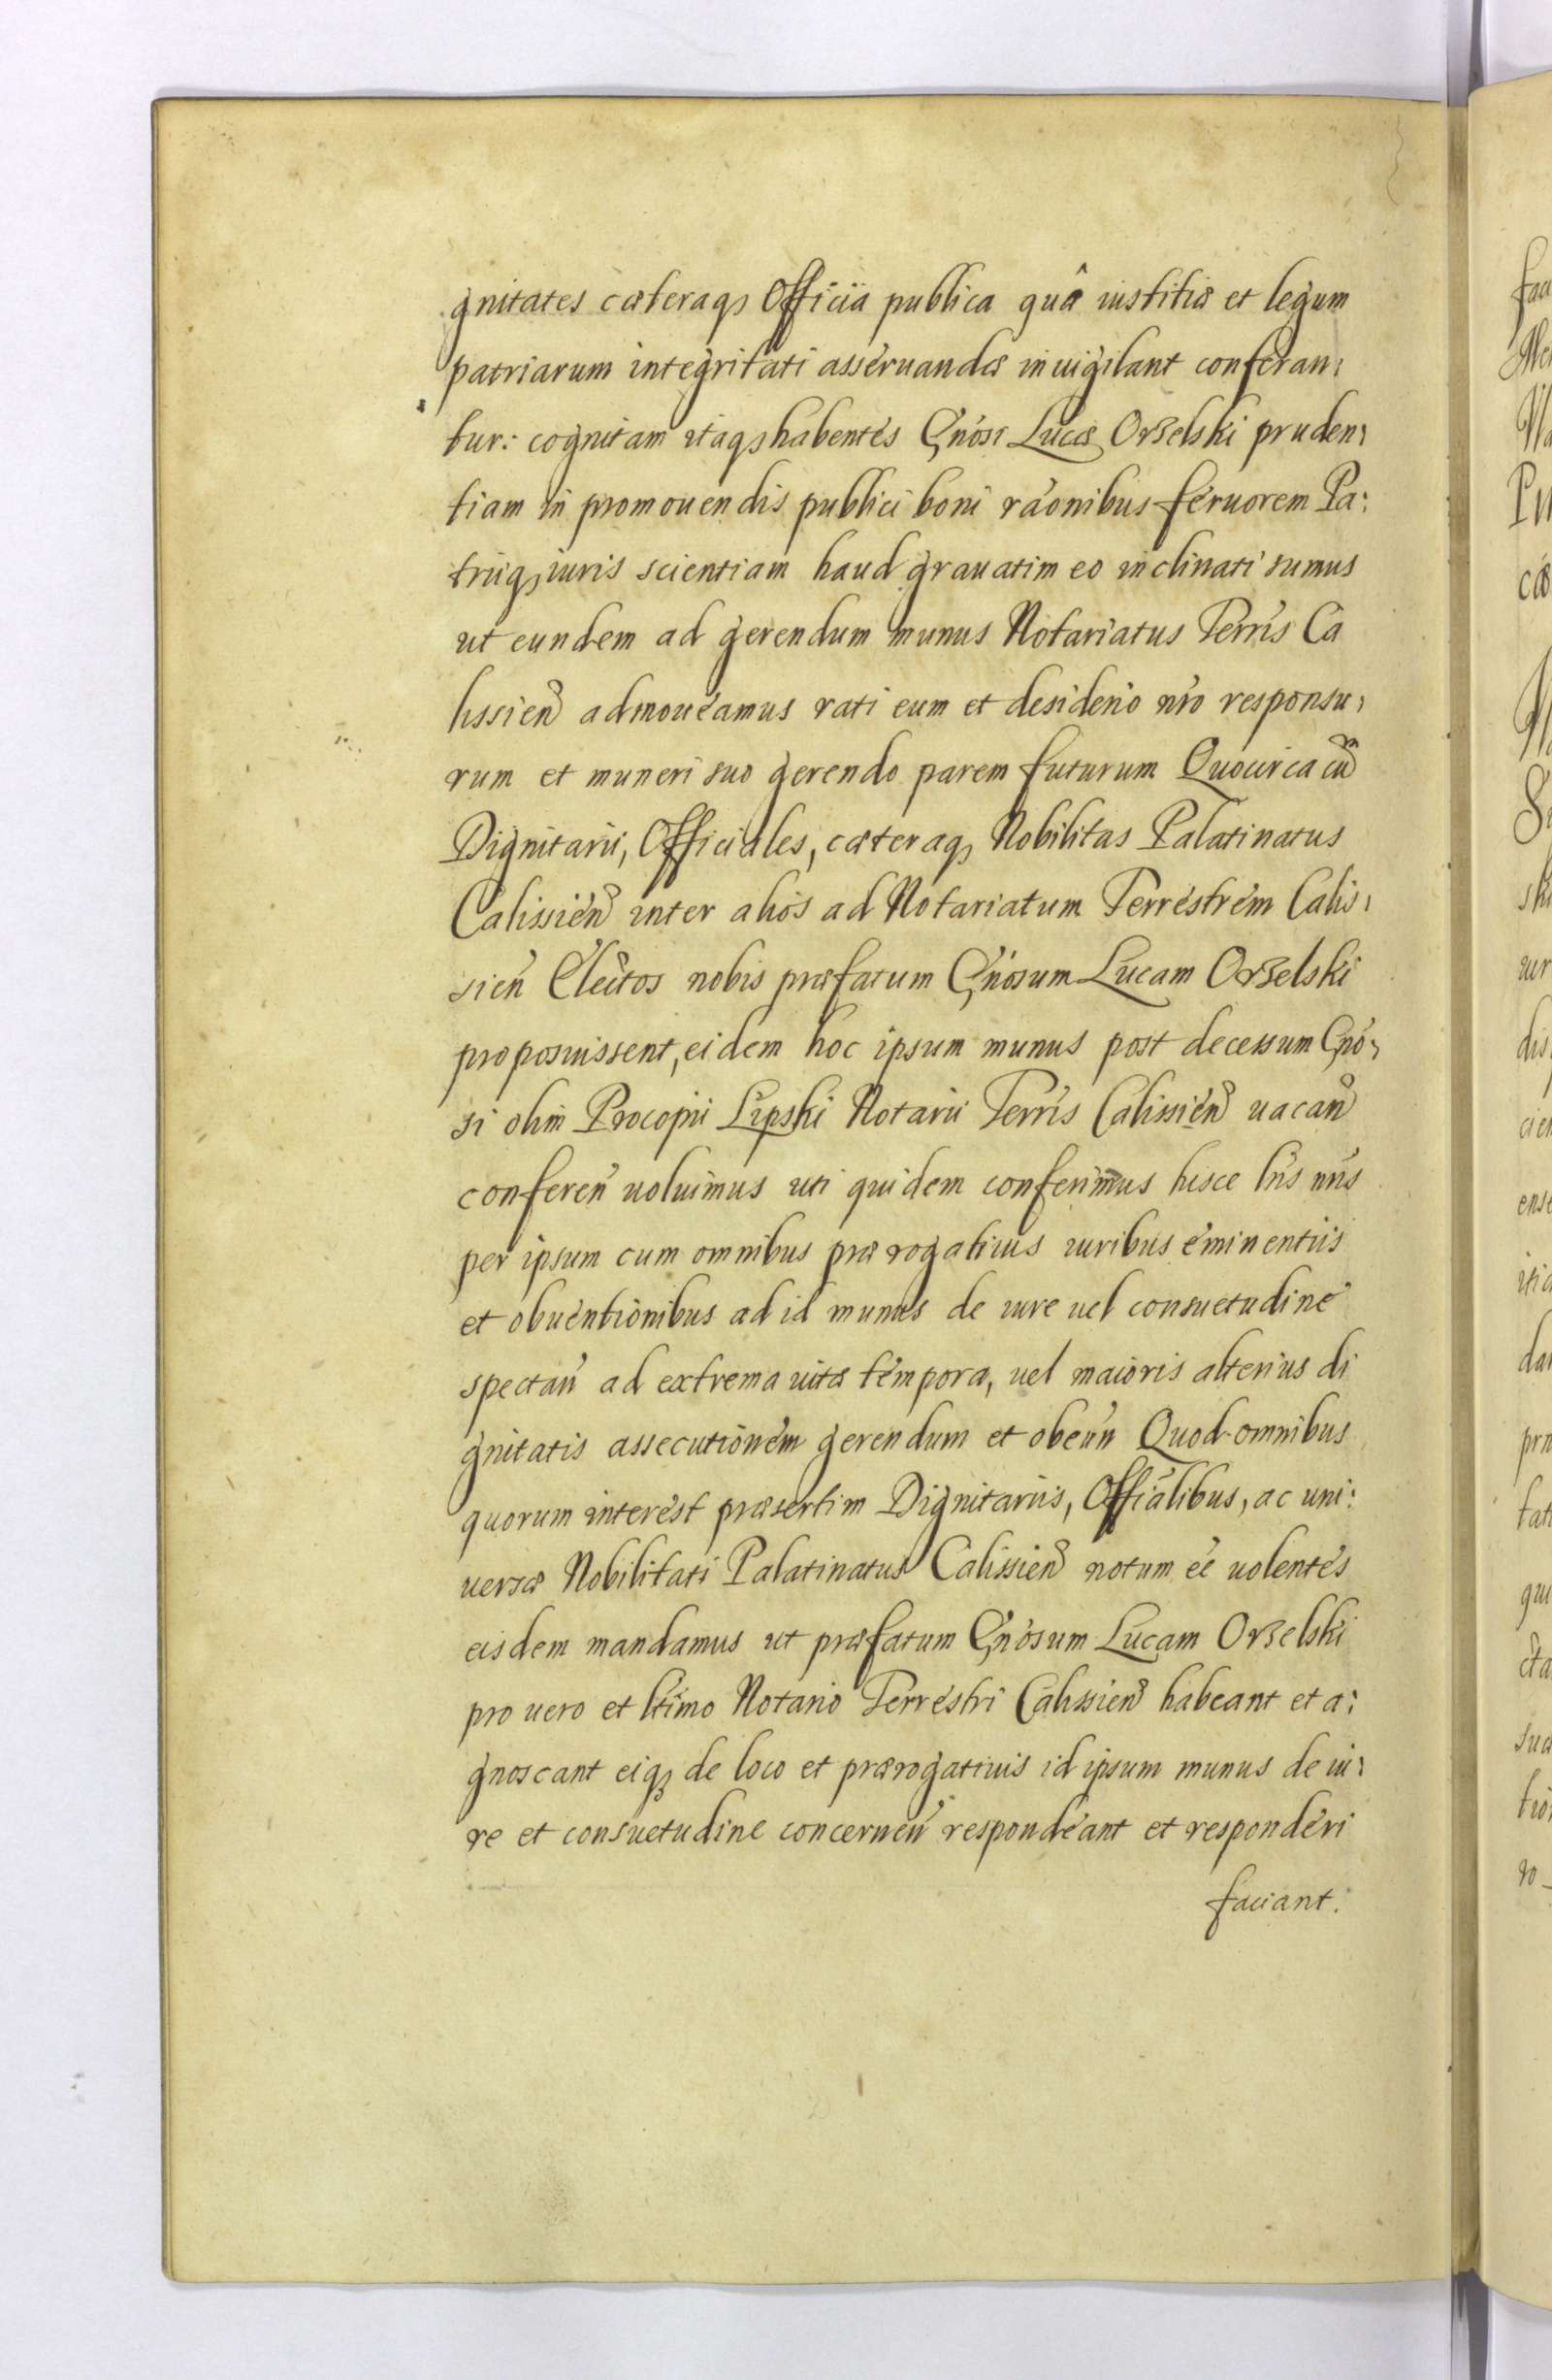 gnitates cæteraqȝ Officia publica quâ iustitiæ et legum
patriarum integritati asseruandæ inuigilant conferan:
tur: cognitam itaqȝ habentes Gnósi Lucæ Orzelski pruden,
tiam in promouendis publici boni ráonibus feruorem Pa:
triiqȝ iuris scientiam haud grauatim eo inclinati sumus
ut eundem ad gerendum munus Notariatus Terrís Ca
lissień admoueamus rati eum et desiderio nró responsu,
rum et muneri suo gerendo parem futurum Quocirca cũ
Dignitarii, Officiales, cæteraqȝ Nobilitas Palatinatus
Calissień inter alios ad Notariatum Terrestrem Calis,
sień Electos nobis præfatum Gnósum Lucam Orzelski
proposuissent, eidem hoc ipsum munus post decessum Gnó,
si olim Procopii Lipski Notarii Terrís Calissień uacań
confereń uoluimus uti quidem conferimus hisce lrís nrís
per ipsum cum omnibus prærogatiuis iuribus eminentiis
et obuentionibus ad id munus de iure uel consuetudine
spectań ad extrema uitæ tempora, uel maioris alterius di
gnitatis assecutionem gerendum et obeuń Quod omnibus
quorum interest præsertim Dignitariis, Offiálibus, ac uni:
uersæ Nobilitati Palatinatus Calissień notum eé uolentes
eisdem mandamus ut præfatum Gnósum Lucam Orzelski
pro uero et ltímo Notario Terrestri Calissień habeant et a:
gnoscant eiqȝ de loco et prærogatiuis id ipsum munus de iu,
re et consuetudine concerneń respondeant et responderi
faciant.